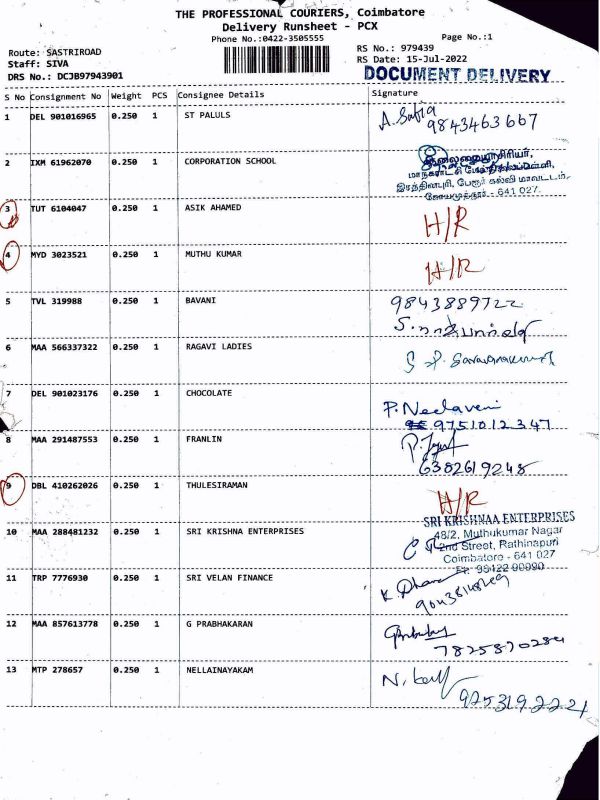 THE PROFESSIONAL COURIERS, Coimbatore
Delivery Runsheet - PCX
Phone No.:0422-3505555
Page No.:1
Route: SASTRIROAD
Staff: SIVA
DRS No.: DCJB97943901
RS No.: 979439
RS Date: 15-Jul-2022
DOCUMENT DELIVERY
S No Consignment No Weight PCS Consignee Details Signature
1 DEL 901016965 0.250 1 ST PALULS A. Safia
9843463667
2 IXM 61962070 0.250 1 CORPORATION SCHOOL
தலைமையாசிரியர்,
இரத்தினபுரி, பேரூர் கல்வி மாவட்டம்,
கோயமுத்தூர் - 641 027.
3 TUT 6104047 0.250 1 ASIK AHAMED H/R
4 MYD 3023521 0.250 1 MUTHU KUMAR H/R
5 TVL 319988 0.250 1 BAVANI 9843889722
6 MAA 566337322 0.250 1 RAGAVI LADIES
7 DEL 901023176 0.250 1 CHOCOLATE P. Neelaveni
9751012347
8 MAA 291487553 0.250 1 FRANLIN
6382619248
9 DBL 410262026 0.250 1 THULESIRAMAN H/R
10 MAA 288481232 0.250 1 SRI KRISHNA ENTERPRISES
SRI KRISHNAA ENTERPRISES
48/2, Muthukumar Nagar
2nd Street, Rathinapuri
Coimbatore - 641 027
11 TRP 7776930 0.250 1 SRI VELAN FINANCE
12 MAA 857613778 0.250 1 G PRABHAKARAN
7825870284
13 MTP 278657 0.250 1 NELLAINAYAKAM
9253192221